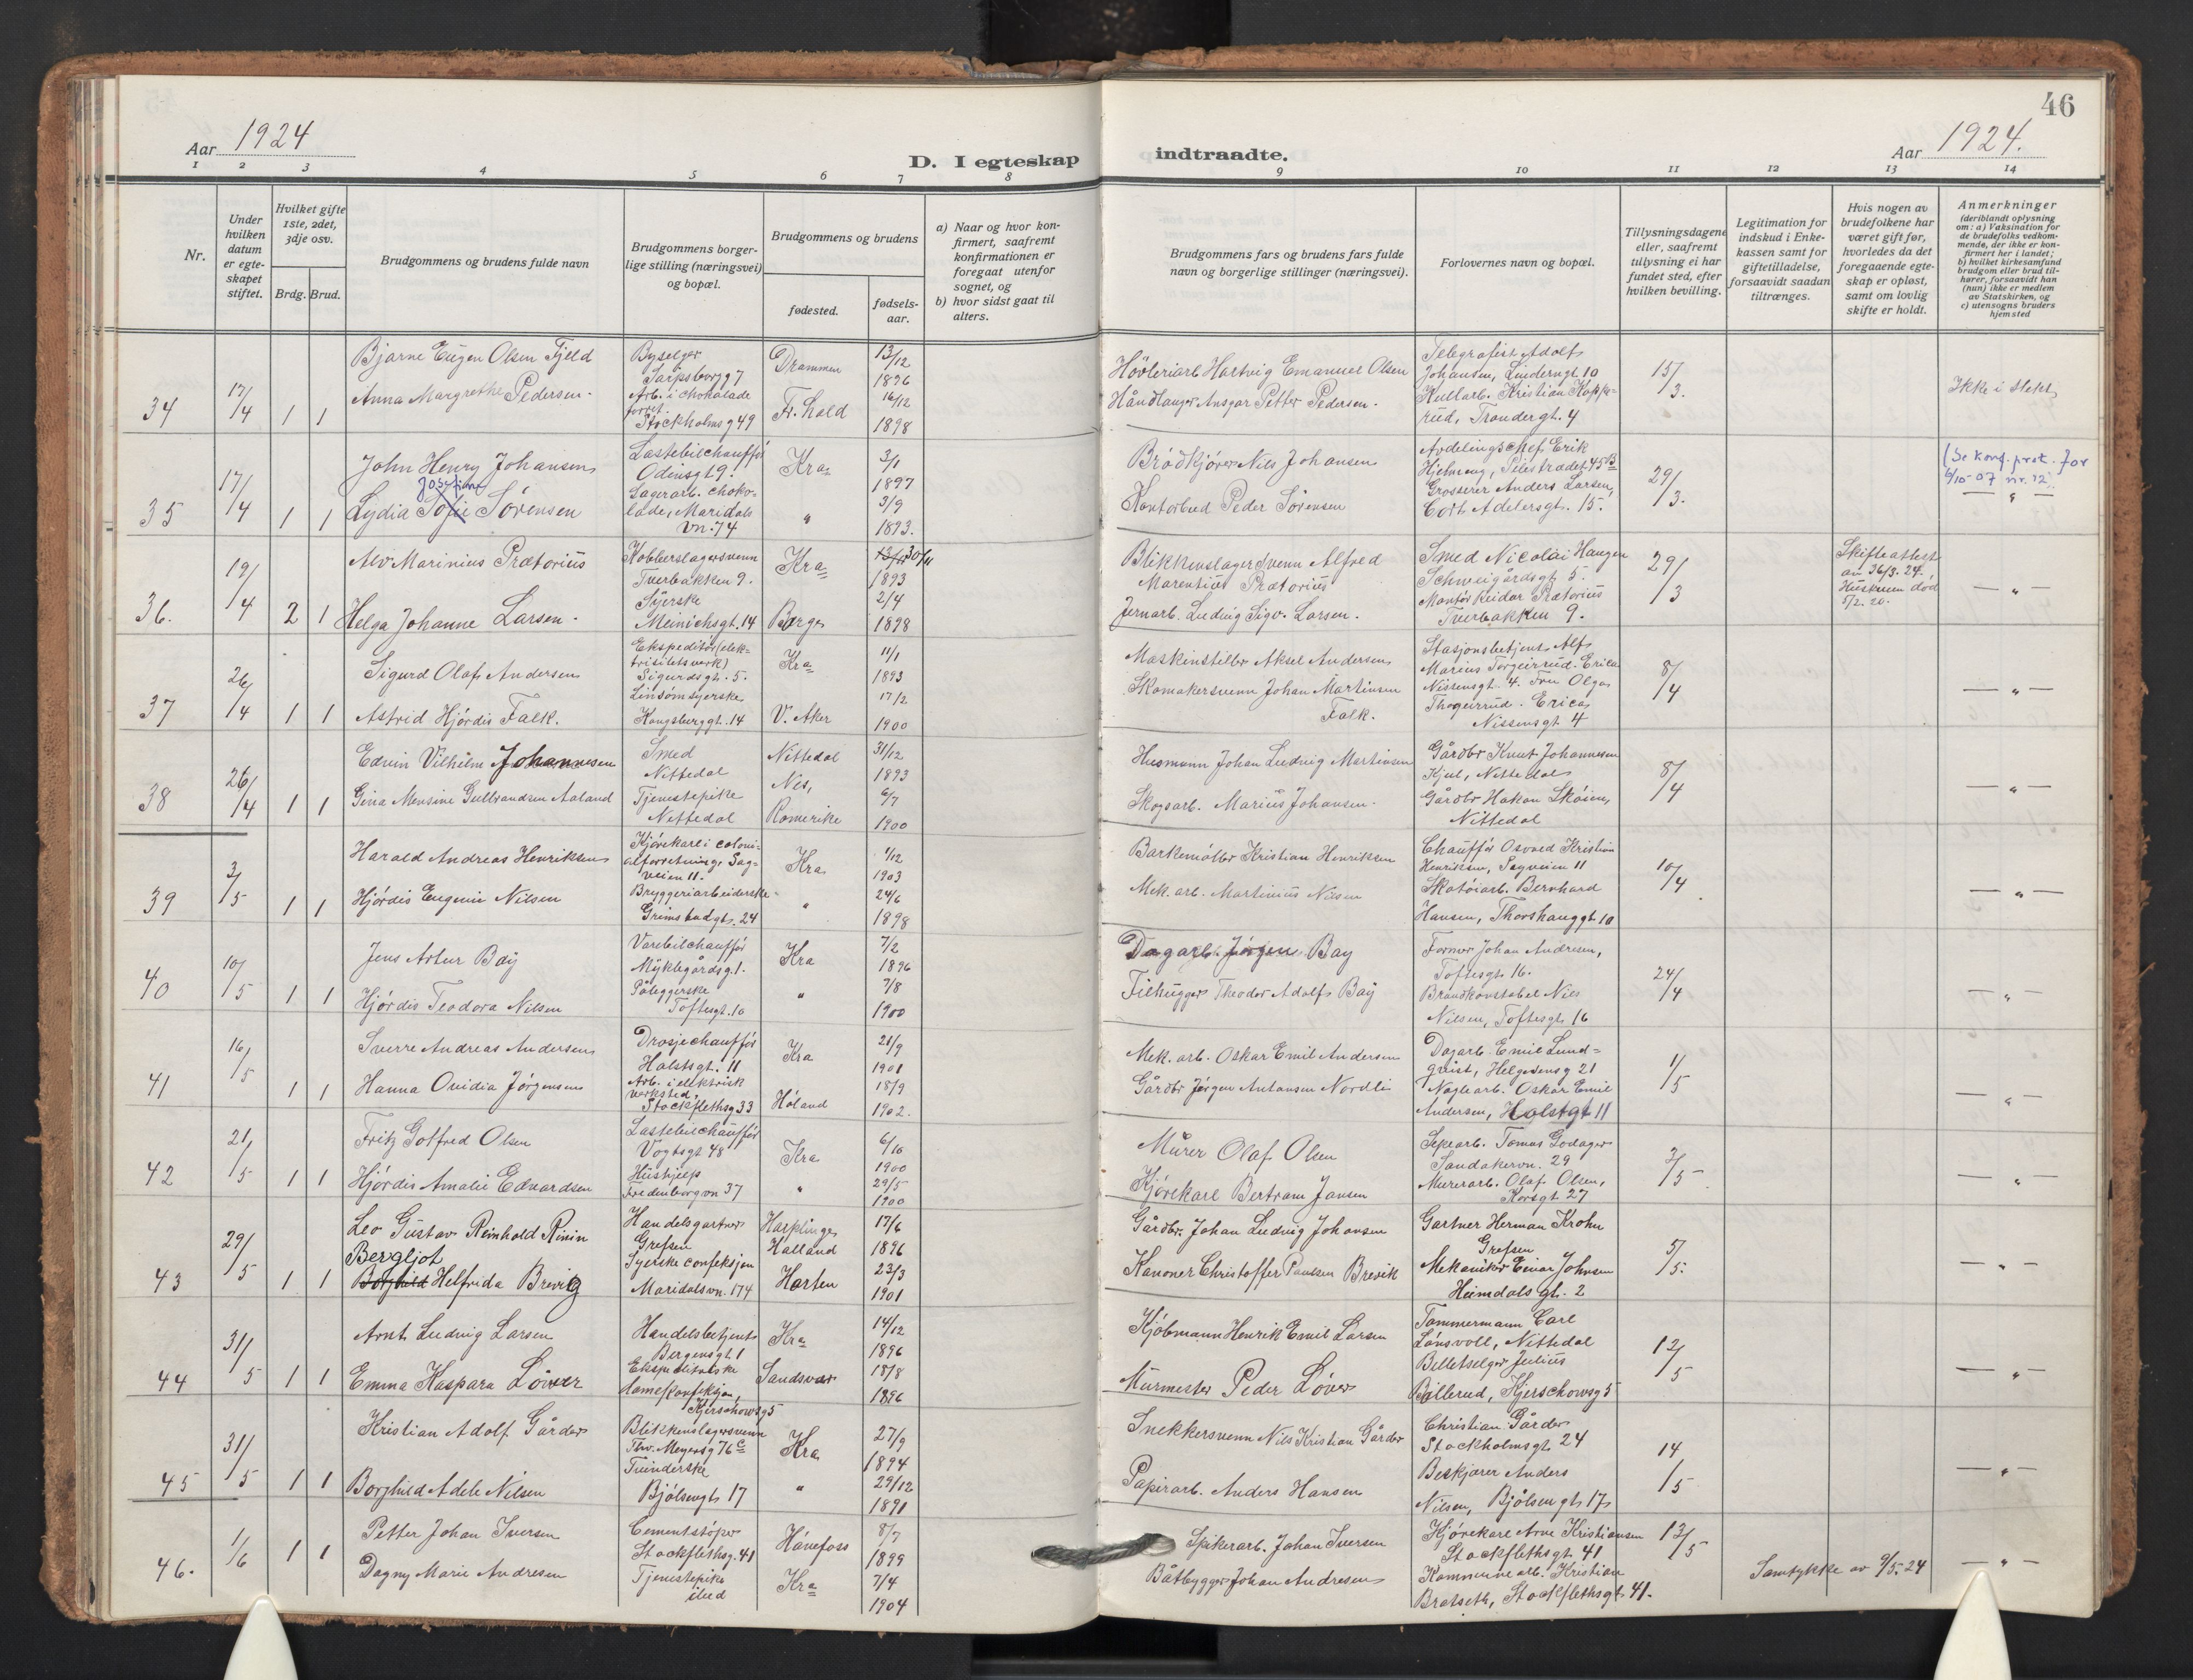 46
Aar 1924
D. I egteskap indtraadte.
Aar 1924.
1 2 3 4 5 6 7 8 9 10 11 12 13 14
Nr.
Under hvilken datum er egteskapet stiftet.
Hvilket gifte 1ste, 2det, 3dje osv.
Brdg. Brud.
Brudgommens og brudens fulde navn
Brudgommens borgerlige stilling (næringsvei) og bopæl.
Brudgommens og brudens
fødested.
fødselsaar.
a) Naar og hvor konfirmert, saafremt konfirmationen er foregaat utenfor sognet, og
b) hvor sidst gaat til alters.
Brudgommens fars og brudens fars fulde navn og borgerlige stillinger (næringsvei).
Forlovernes navn og bopæl.
Tillysningsdagene eller, saafremt tillysning ei har fundet sted, efter hvilken bevilling.
Legitimation for indskud i Enkekassen samt for giftetilladelse, forsaavidt saadan tiltrænges.
Hvis nogen av brudefolkene har været gift før, hvorledes da det foregaaende egteskap er opløst, samt om lovlig skifte er holdt.
Anmerkninger
(deriblandt oplysning om: a) Vaksination for de brudefolks vedkommende, der ikke er konfirmert her i landet; b) hvilket kirkesamfund brudgom eller brud tilhører, forsaavidt han (hun) ikke er medlem av Statskirken, og c) utensogns bruders hjemsted
34 17/4 1 1
Bjarne Eugen Olsen Fjeld
Anna Margrethe Pedersen.
Byselger
Sarpsborgg 7
Arb. i chokolade
fabr.
Stockholmsg 49
Drammen 13/12 1896
Fr. hald 16/12 1898
Høvleriarb Hartvig Emanuel Olsen
Håndlanger Ansgar Petter Pedersen.
Telegrafist Adolf
Johansen, Linderngt. 10
Kullarb. Kristian Kopperud, Trondergt. 4
15/3.
Ikke i slekt
35 17/4 1 1
John Henry Johansen
Josefine
Lydia Sofie Sørensen
Lastebilchauffør
Odinsgt 9.
Lagerarb. chokolade, Maridalsvn. 74
Kra 3/1 1897
" 3/9 1893.
Brødkjører Nils Johansen
Kontorbud Peder Sørensen
Avdelingschef Erik
Hjelmeng, Pilestrædet 45 B
Grosserer Anders Larsen,
Cort Adelersgt. 15.
29/3.
(Se konf. prot. for
6/10-07 nr. 12)
— " —
36. 19/4 2 1
Alv Marinius Prætorius
Helga Johanne Larsen.
Kobberslagersvenn
Tverbakken 9.
Syerske
Meinichsgt. 14
Kra 30/11 1893
Borge 2/4 1898
Blikkenslagersvenn Alfred
Marentius Prætorius
Jernarb. Ludvig Sigv. Larsen.
Smed Nicolai Haugen
Schweigårdsgt. 5.
Montør Reidar Prætorius
Tverbakken 9.
29/3
Skifteattest
Hustruen død
5/2. 20.
— " —
37 26/4 1 1
Sigurd Olaf Andersen
Astrid Hjørdis Falk.
Ekspeditør (elektrisitetsverk)
Sigurdsgt. 5.
Linsømsyerske
Kongsberggt. 14
Kra 11/1 1893
V. Aker 17/2 1900
Maskinstiller Aksel Andersen
Skomakersvenn Johan Martinsen
Falk.
Stasjonsbetjent Alf
Marius Torgeirrud. Erica
Nissensgt. 4. Fru Olga
Thogeirrud. Erica
Nissensgt 4
8/4
— " —
38 26/4 1 1
Edvin Vilhilm Johannesen
Gina Mensine Gulbrandsen Aaland
Smed
Nittedal
Tjenestepike
Nittedal
Nittedal 31/12 1893
Nes, Romerike 6/7 1900
Husmann Johan Ludvig Martinsen
Skogsarb. Marius Johansen.
Gårdbr Knut Johannesen
Kjul, Nittedal
Gårdbr Hakon Skøien,
Nittedal
8/4
— " —
39 3/5 1 1
Harald Andreas Henriksen
Hjørdis Eugenie Nilsen
Kjørekarl i colonialforretning, Sagveien 11.
Bryggeriarbeiderske
Grimstadgt. 24
Kra 1/12 1903
" 24/6 1898
Barkemøller Kristian Henriksen
Mek. arb. Martinius Nilsen
Chauffør Osvald Kristian
Henriksen, Sagveien 11
Skotøiarb. Bernhard
Hansen, Thorshauggt. 10
10/4
— " —
40 10/5 1 1
Jens Artur Bay
Hjørdis Teodora Nilsen
Varebilchauffør
Myklegårdsg. 1.
Påleggerske
Toftesgt. 16
Kra 7/2 1896
" 7/8 1900
Dagarb. Jørgen Bay
Filhugger Theodor Adolf Bay
Former Johan Andresen,
Toftesgt. 16.
Brandkonstabel Nils
Nilsen, Toftesgt. 16
24/4
— " —
41 16/5 1 1
Sverre Andreas Andersen
Hanna Ovidia Jørgensen
Drosjechauffør
Holstsgt. 11
Arb. i elektrisk
verksted,
Stockflethsg 33
Kra 21/9 1901
Høland 18/9 1902.
Mek. arb. Oskar Emil Andersen
Gårdbr Jørgen Antonsen Nordli
Dagarb Emil Lundquist, Helgesensg 21
Naglearb. Oskar Emil
Andersen, Holstgt 11
1/5
— " —
42 21/5 1 1
Fritz Gotfred Olsen
Hjørdis Amalie Edvardsen
Lastebilchauffør
Vogtsgt 48
Hushjelp
Fredensborgvn 37
Kra 6/10 1900
" 29/5 1900
Murer Olaf Olsen
Kjørekarl Bertram Jansen
Sepearb. Tomas Godager
Sandakervn. 29
Murerarb. Olaf Olsen,
Korsgt. 27
3/5
— " —
43 29/5 1 1
Leo Gustav Reinhold Rinin
Bergljot
Borghild Helfrida Brevig
Handelsgartner
Grefsen
Syerske confeksjon
Maridalsvn. 174
Harplinge Halland 17/6 1896
Horten 23/3 1901
Gårdbr. Johan Ludvig Johansen
Kanoner Christoffer Paulsen Brevik
Gartner Herman Krohn
Grefsen
Mekaniker Einar Johnsen
Heimdals gt. 2
5/5.
— " —
44 31/5 1 1
Arnt Ludvig Larsen
Emma Kaspara Løver
Handelsbetjent
Bergensgt. 1
Ekspeditriske
damekonfeksjon,
Kjerschowsg 5
Kra 14/12 1896
Sandsvær 18/8 1896
Kjøbmann Henrik Emil Larsen
Murmester Peder Løver
Tømmermann Carl
Lønsvoll, Nittedal
Billetselger Julius
Billerud, Kjerschowsg 5
12/5
— " —
45 31/5 1 1
Kristian Adolf Gårder
Borghild Adele Nilsen
Blikkenslagersvenn
Thv. Meyersg 76 c
Tvinderske
Bjølsengt. 17
Kra 27/9 1894
" 29/12 1891
Snekkersvenn Nils Kristian Gårder
Papirarb. Anders Hansen
Christian Gårder
Stockholmsgt. 24
Beskjærer Anders
Nilsen, Bjølsengt. 17
14/5
— " —
46. 1/6 1 1
Petter Johan Iversen
Dagny Marie Andresen
Cementstøper
Stockflethsg. 41
Tjenestepike
ibid
Hønefoss 8/7 1899
Kra 7/4 1904
Spikerarb. Johan Iversen
Båtbygger Johan Andresen
Kjørekarl Arne Kristiansen
Stockflethsgt. 41
Kommunearb. Kristian
Bratseth, Stockflethsgt. 41.
13/5
Samtykke av 9/5. 24
— " —